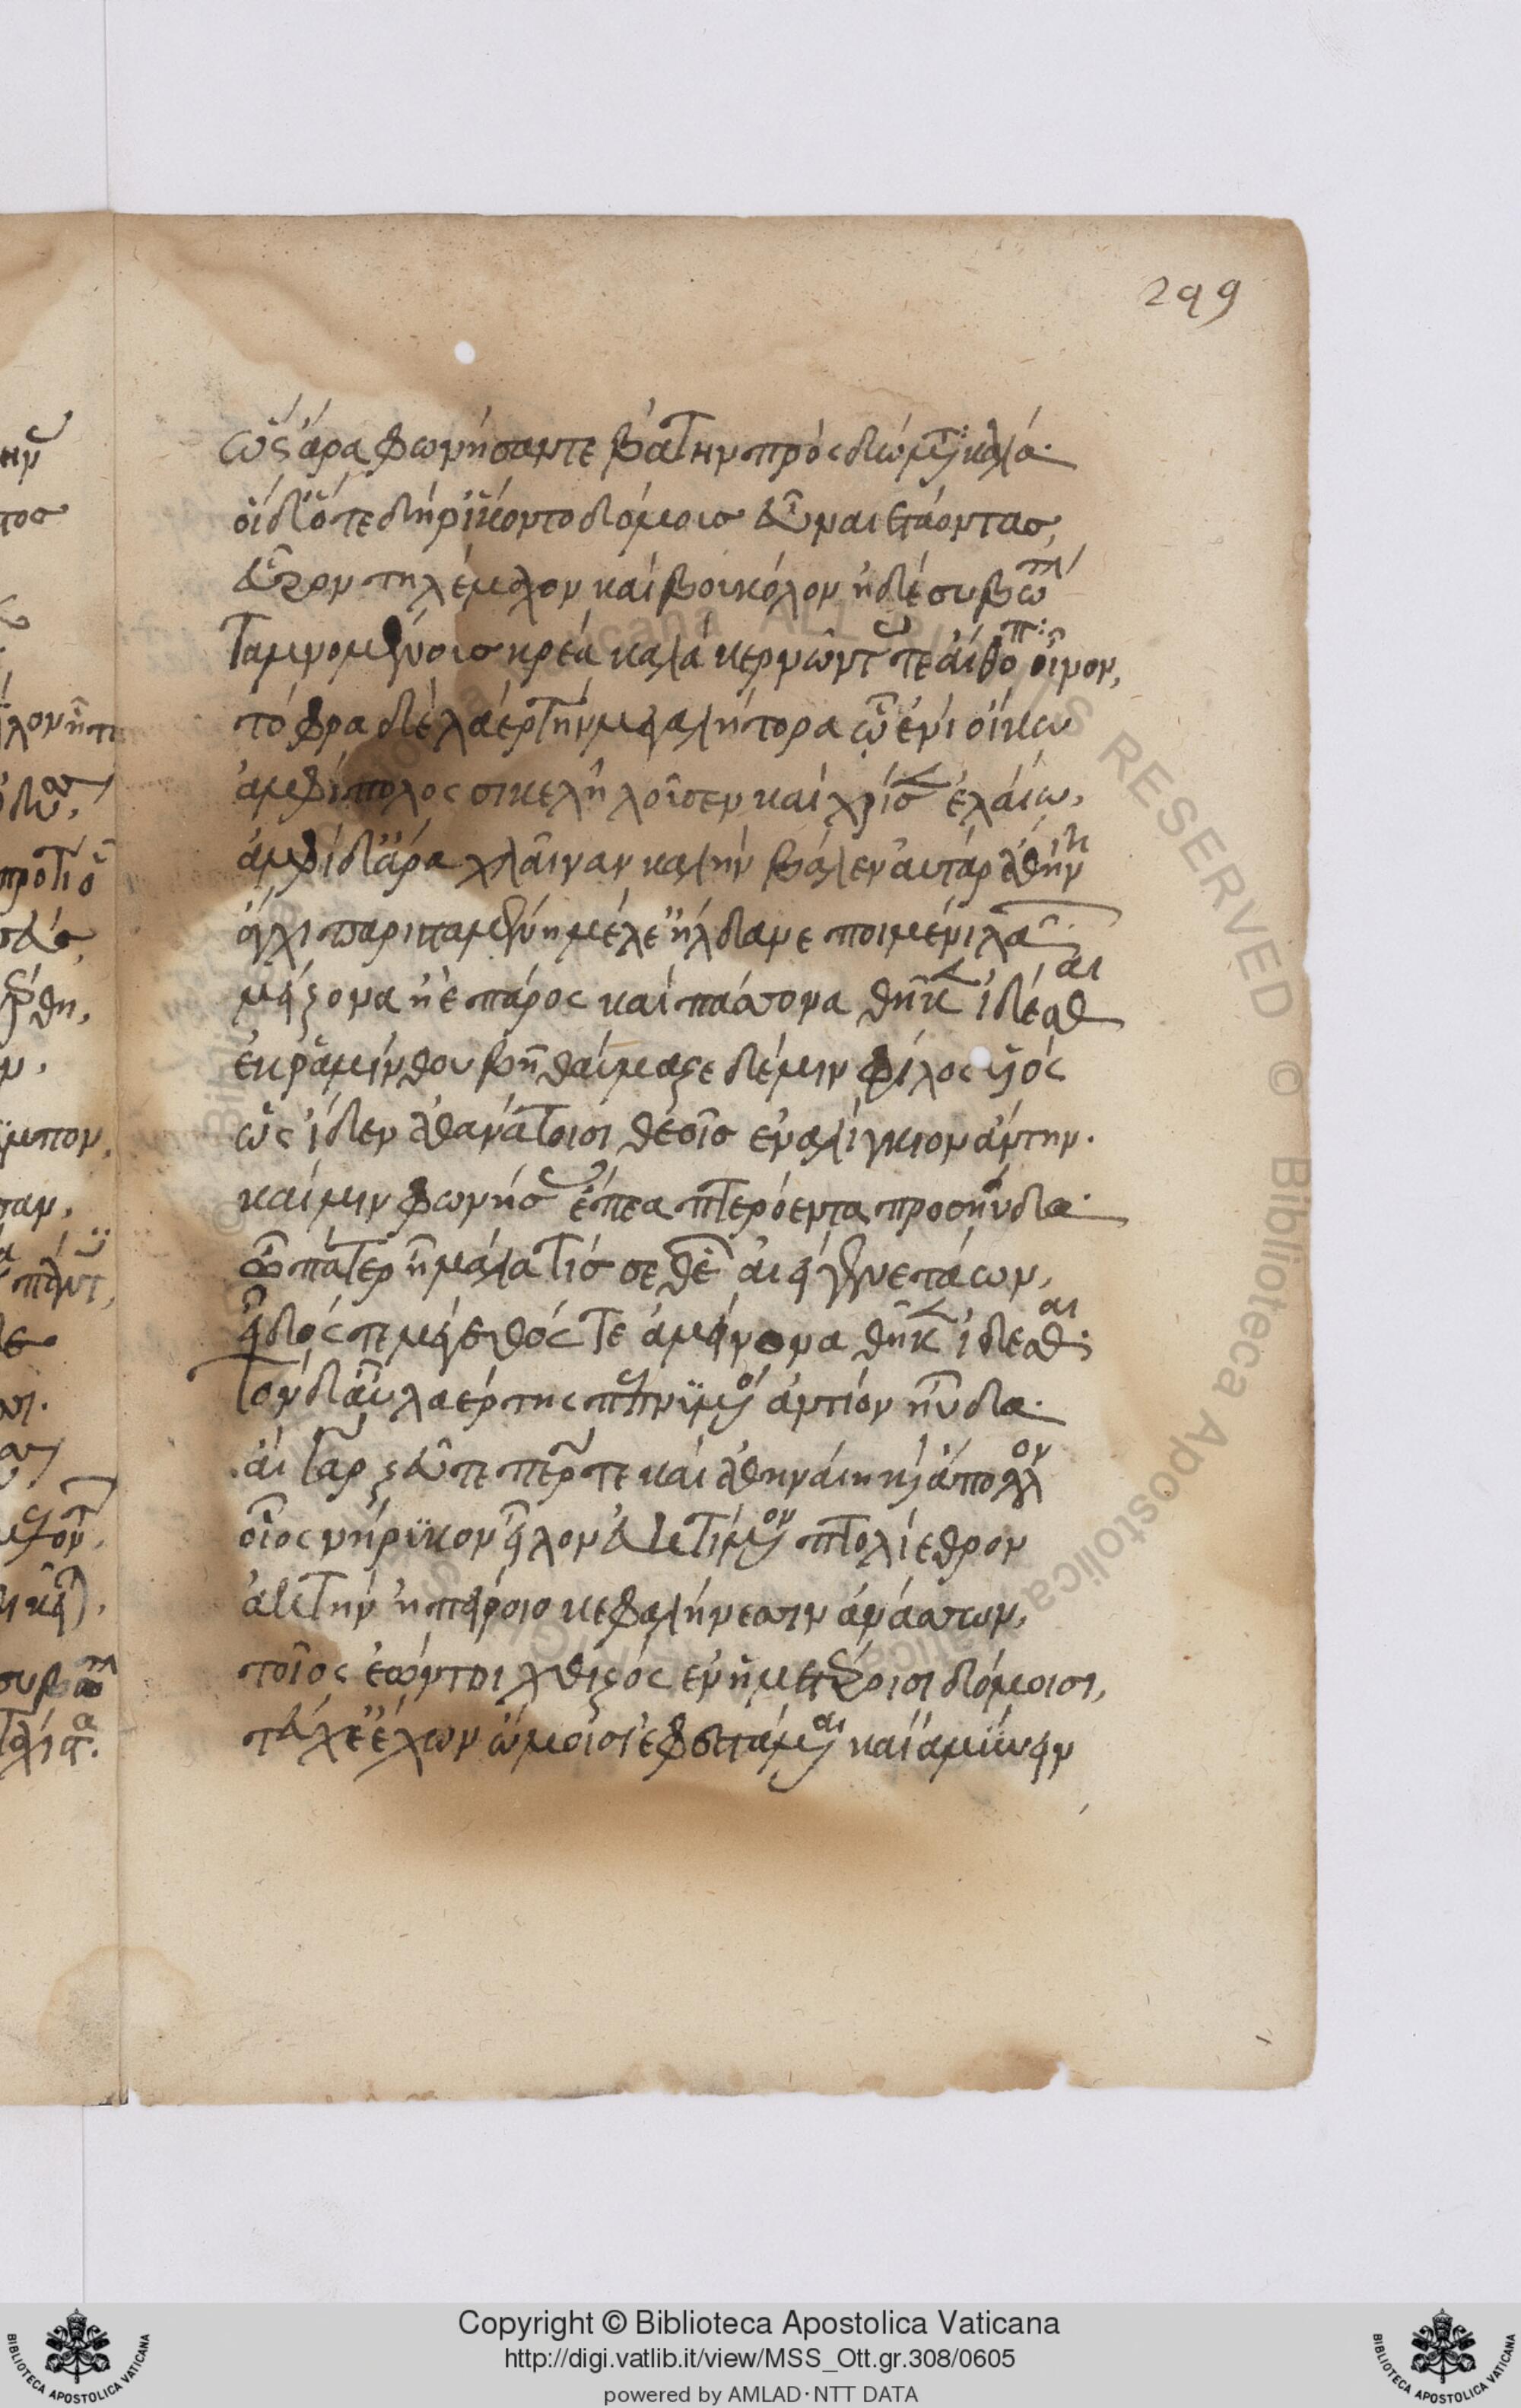 299
ὣς ἄρα φωνήσαντε βάτην πρὸς δώματα καλά.
οἱ δ' ὅτε δή ῥ' ἵκοντο δόμους εὖ ναιετάοντας,
εὗρον τηλέμαχον καὶ βουκόλον ἠδὲ συβώτην
ταμνομένους κρέα καλὰ κερῶντάς τε αἴθοπα οἶνον,
τόφρα δὲ λαέρτην μεγαλήτορα ᾧ ἐνὶ οἴκω
ἀμφίπολος σικελὴ λοῦσεν καὶ χρῖσεν ἐλαίω,
ἀμφὶ δ' ἄρα χλαῖναν καλὴν βάλεν αὐτὰρ ἀθήνη
ἄγχι παρισταμένη μέλε' ἤλδανε ποιμένι λαῶν.
μείζονα ἠὲ πάρος καὶ πάσσονα θῆκεν ἰδέσθαι
ἐκ ῥ' ἀσαμίνθου βῆ θαύμαζε δέ μιν φίλος υἱός
ὡς ἴδεν ἀθανάτοισι θεοῖς ἐναλίγκιον ἄντην.
καί μιν φωνήσας ἔπεα πτερόεντα προσηύδα.
ὦ πάτερ ἦ μάλα τίς σε θεῶν αἰειγενετάων,
εἶδός τε μέγεθός τε ἀμείνονα θῆκεν ἰδέσθαι.
τὸν δ' αὖ λαέρτης πεπνυμένος ἀντίον ηὔδα.
αἲ γὰρ ζεῦ τε πάτερ τε καὶ ἀθηναίη καὶ ἄπολλον
οἷος νήρικον εἷλον ἐυκτίμενον πτολίεθρον
ἀκτὴν ἠπείροιο κεφαλήνεσσιν ἀνάσσων,
τοῖος ἐών τοι χθιζὸς ἐν ἡμετέροισι δόμοισι,
τεύχε' ἔχων ὤμοισι ἐφεστάμεναι καὶ ἀμύνειν
Copyright © Biblioteca Apostolica Vaticana
http://digi.vatlib.it/view/MSS_Ott.gr.308/0605
powered by AMLAD·NTT DATA